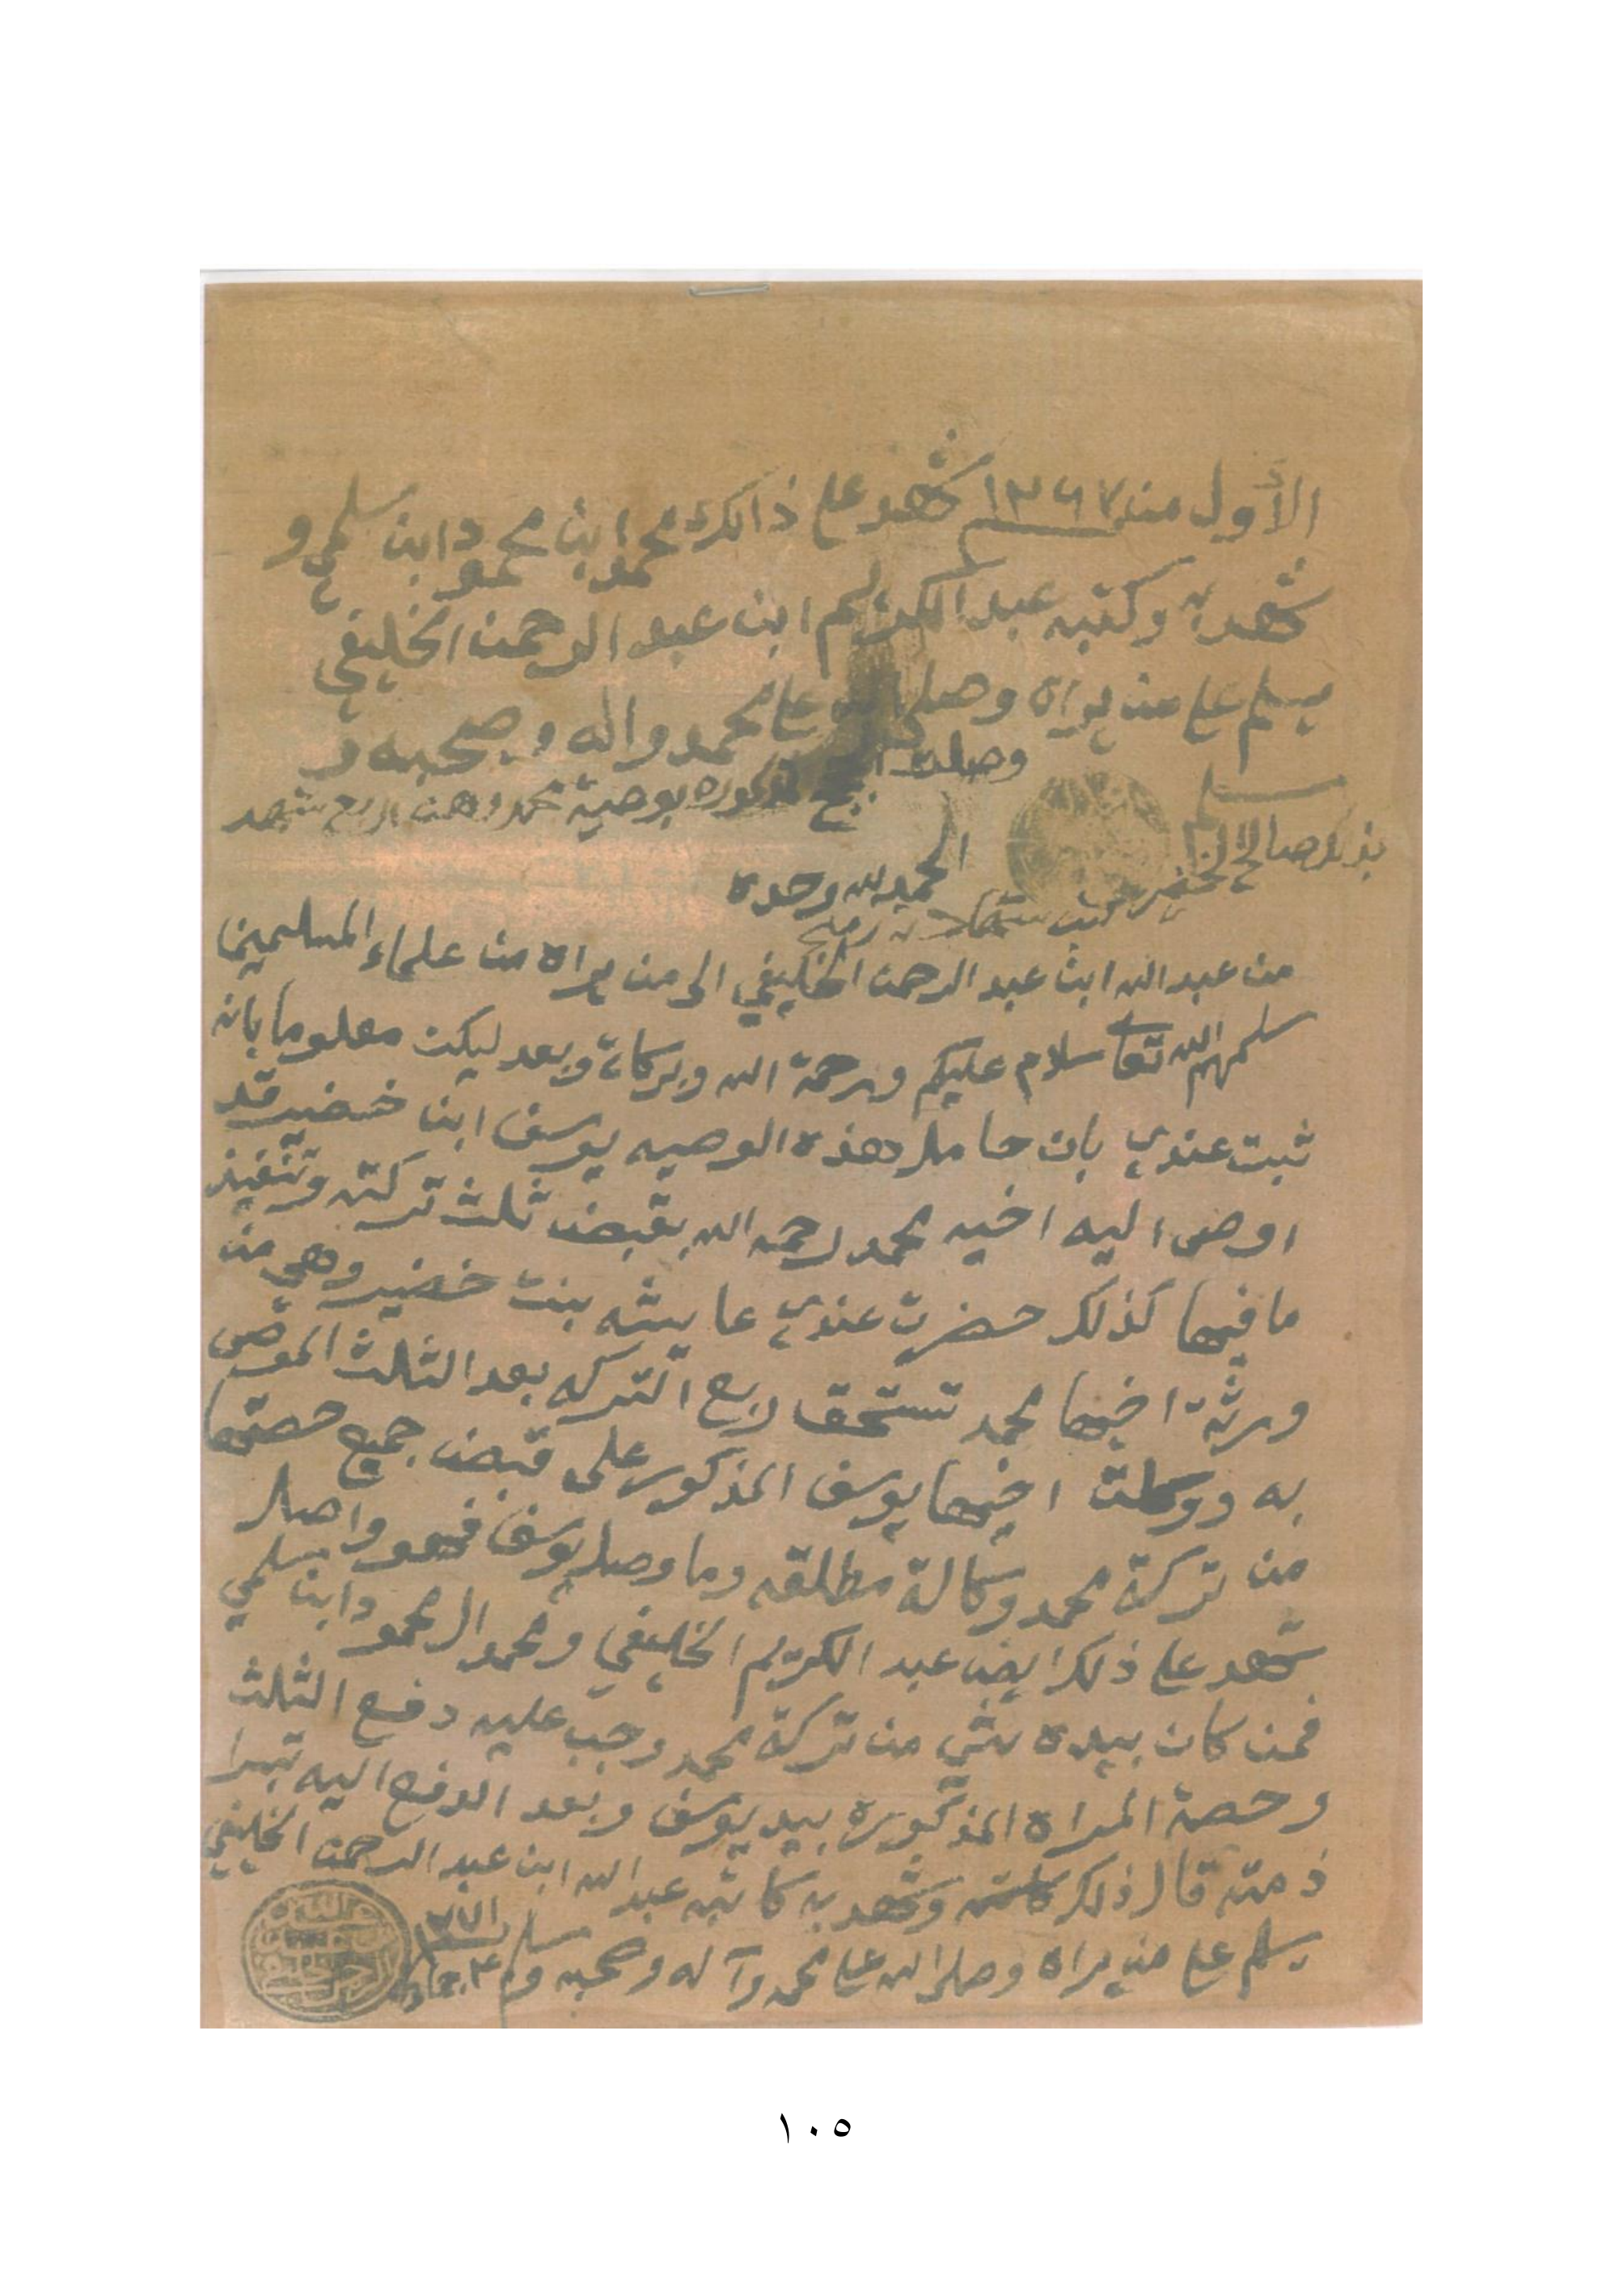 الأول من ١٣٦٧ شهد على ذالك محمد ابن محمود ابن سلمي و
شهد به وكتبه عبد الكريم ابن عبد الرحمن الخليفي
يسلم على من يراه وصلى الله على محمد واله وصحبه و
سلم
وصلت المذكوره بوصية محمد وهن اربع شهد
بذلك صالح الخضير
الحمد لله وحده
من عبد الله ابن عبد الرحمن الخليفي الى من يراه من علماء المسلمين
سلمهم الله تعا سلام عليكم ورحمة الله وبركاته وبعد ليكن معلوما بانه
ثبت عندي بان حامل هذه الوصيه يوسف ابن خضير قد
اوصى اليه اخيه محمد رحمه الله بقبض ثلث تركته وتنفيذ
ما فيها كذلك حضرت عندي عايشه بنت خضير وهي من
ورثة اخيها محمد تستحق ربع التركه بعد الثلث الموصى
به ووكلت اخيها يوسف المذكور على قبض جميع حصتها
من تركة محمد وكالة مطلقه وما وصل يوسف فهو واصل
شهد على ذلك ايضا عبد الكريم الخليفي ومحمد المحمود ابن سلمي
فمن كان بيده شي من تركة محمد وجب عليه دفع الثلث
وحصة المراه المذكوره بيد يوسف وبعد الدفع اليه تبرا
ذمته قال ذلك وشهد به كاتبه عبد الله ابن عبد الرحمن الخليفي
يسلم على من يراه وصلى الله على محمد وآله وصحبه وسلم
١٠٥